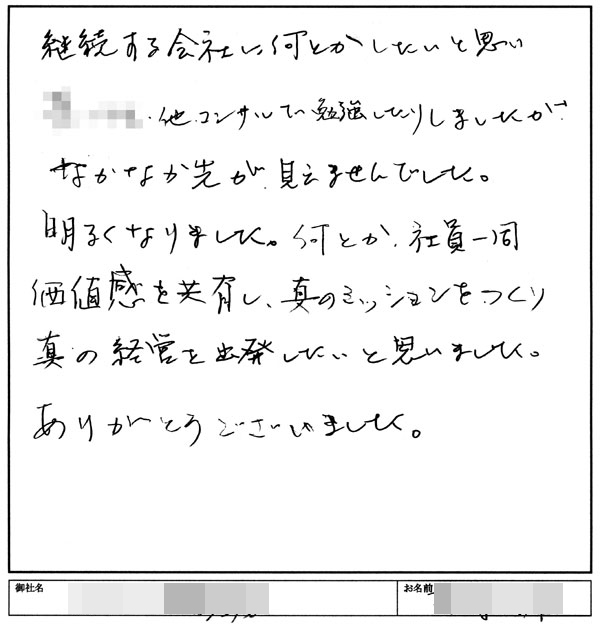 継続する会社に何とかしたいと思い
・他コンサルで勉強したりしましたが
なかなか先が見えませんでした。
明るくなりました。何とか、社員一同
価値感を共有し、真のミッションをつくり
真の経営を出発したいと思いました。
ありがとうございました。
御社名
お名前